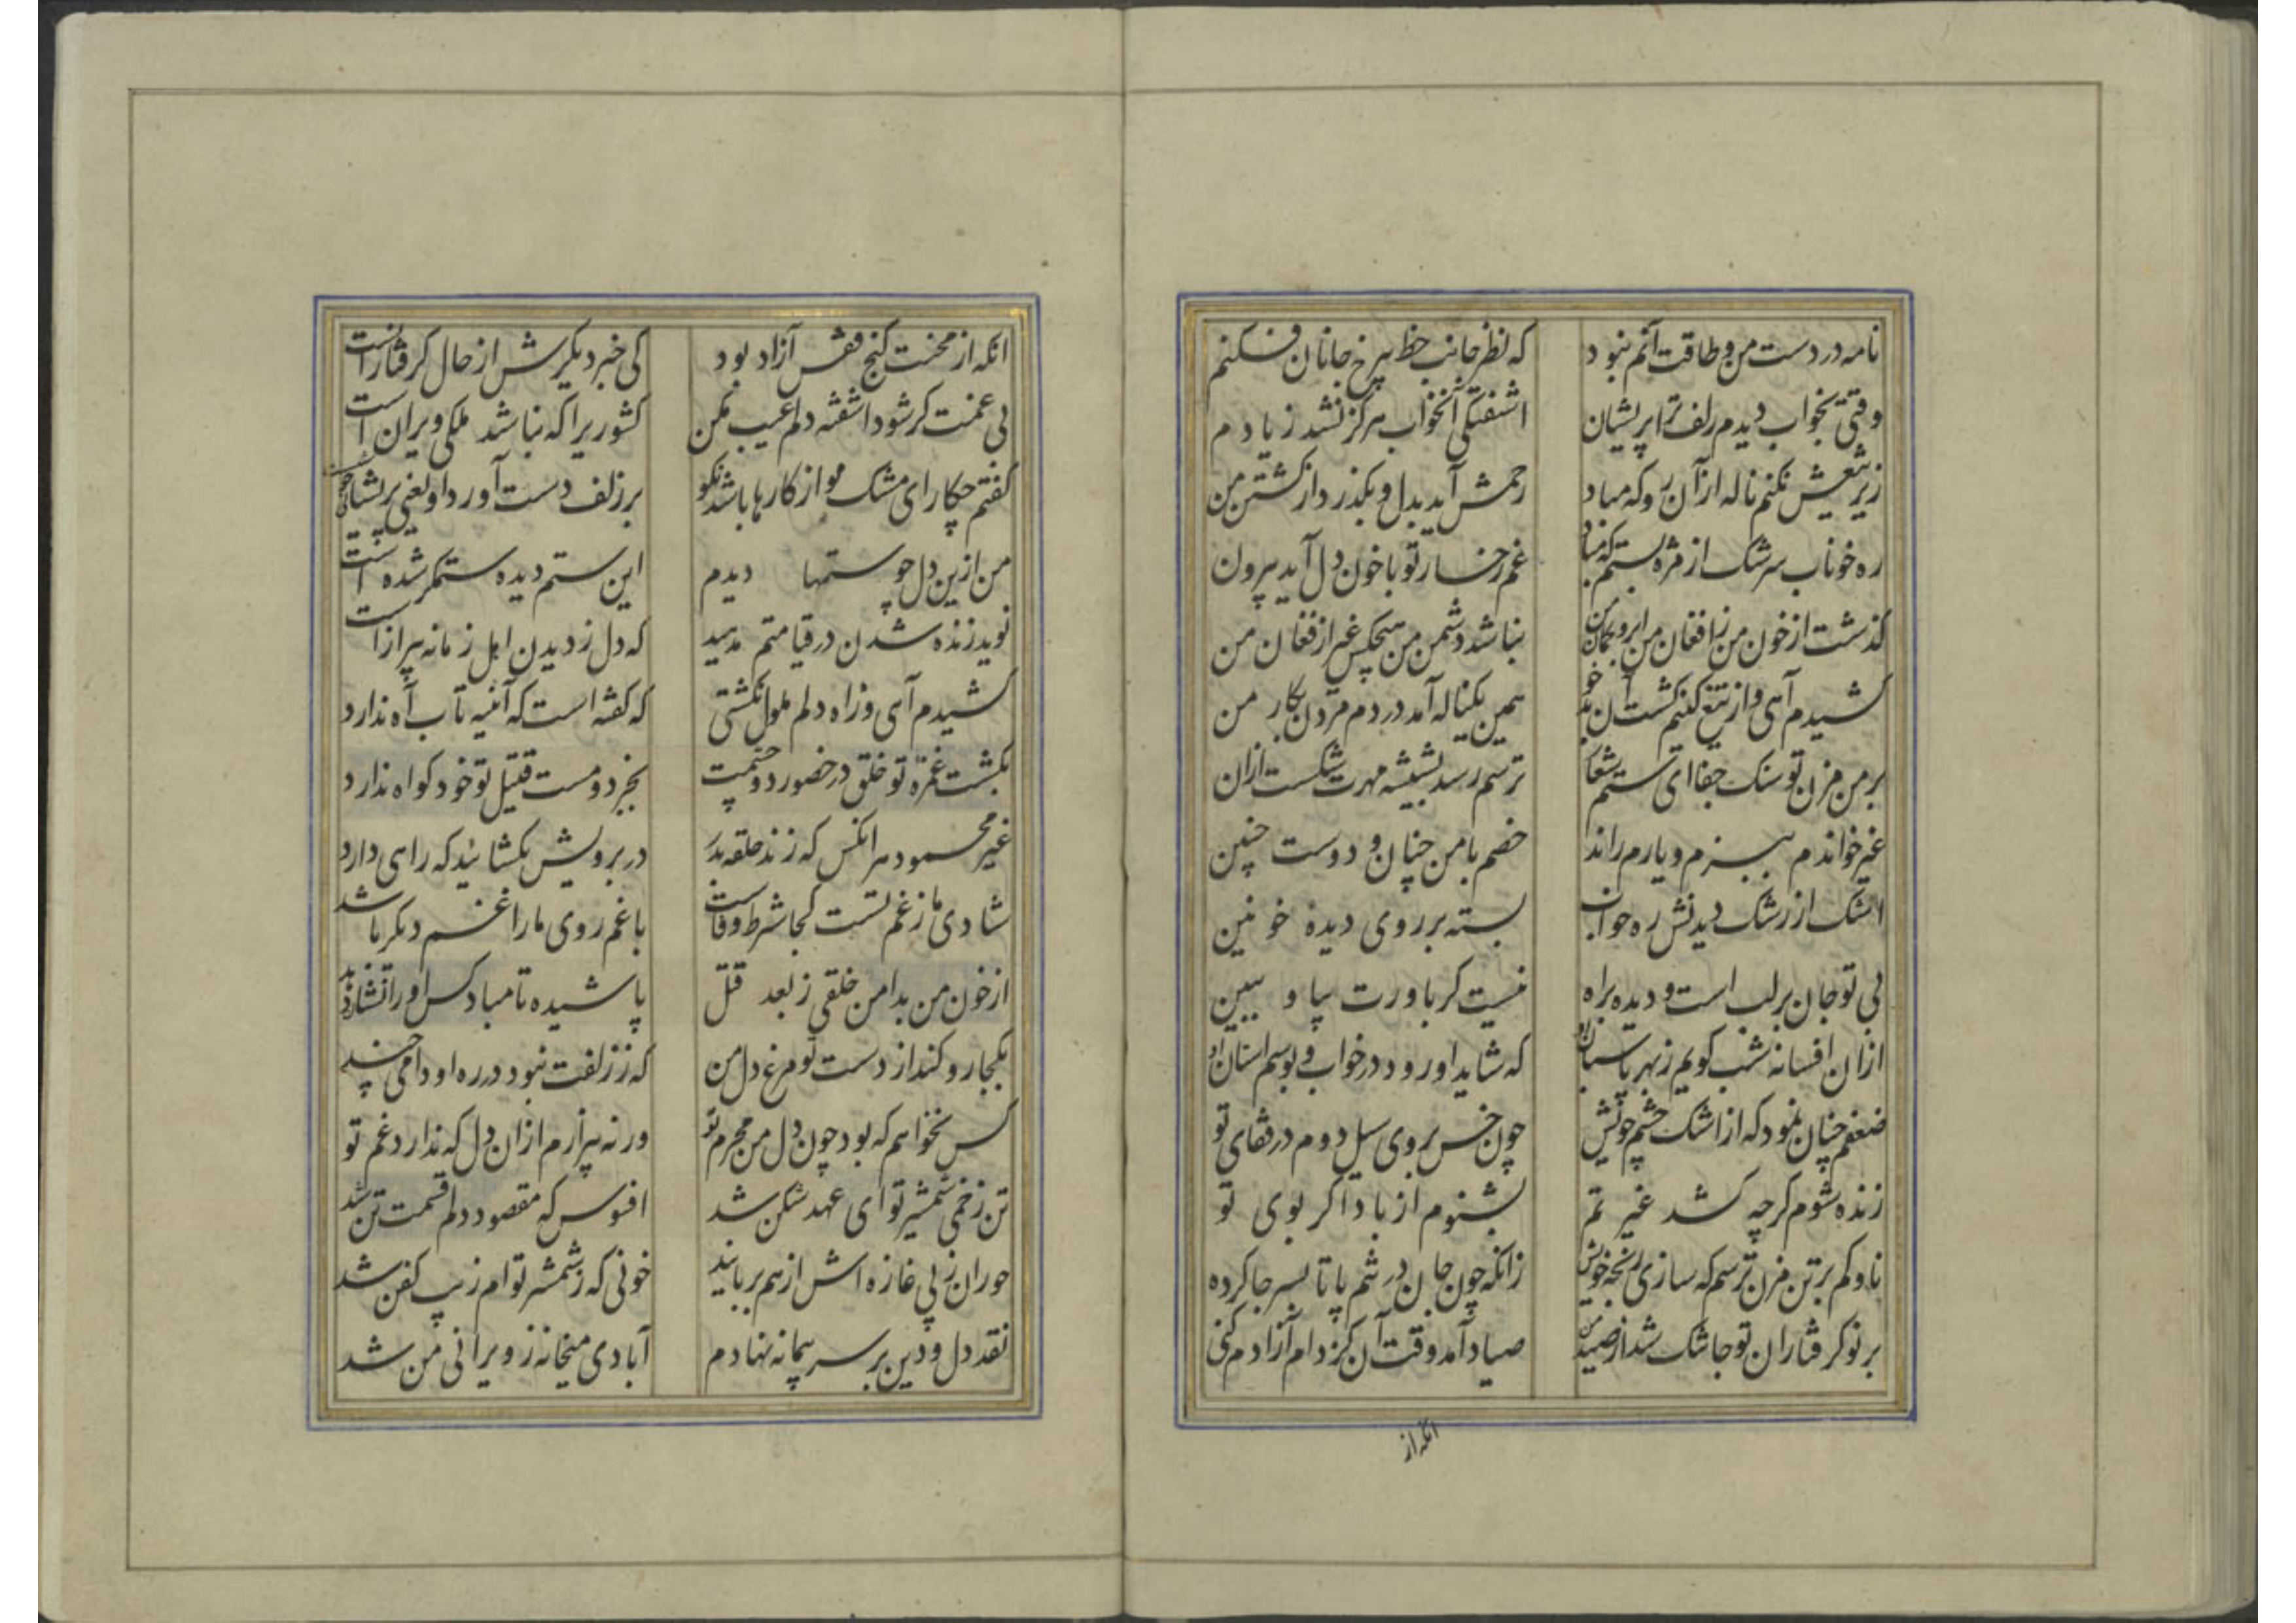 نامه در دست من و طاقت آنم نبود
که نظر جانب خط بیرخ جانان فکنم
وقتی بخواب دیدم زلف ترا پریشان
اشفتکی آنخواب هرکز نشد زیادم
زیر تیغش نکنم ناله از آن رو که مباد
رحمش آید بدل و بکذرد از کشتن من
ره خوناب سرشک از مژه بستم که مباد
غم رخسار تو با خون دل آید بیرون
کذشت از خون من ز افغان من ابرو کمان من
نباشد دشمن من هیچکس غیر از فغان من
کشیدم آهی و از تیغ کینم کشت آن
همین یکناله آمد در دم مردن بکار من
بر من مزن تو سنک جفا ای ستم شعار
ترسم رسد بشیشه مهرت شکست ازان
غیر خواندم ببزم و یارم راند
خصم با من چنان و دوست چنین
اشک از رشک دیدنش ره خواب
بسته بر روی دیده خونین
بی تو جان بر لب است و دیده براه
نیست کر باورت بیا و ببین
ازان افسانه شب کویم زبهر پاسبان او
که شاید او رود در خواب و بوسم استان او
ضعفم چنان نمود که از اشک چشم خویش
چون خس بروی سیل دوم در قفای تو
زنده شوم کرچه کشد غیر تم
بشنوم از باد اکر بوی تو
ناوکم بر تن مزن ترسم که سازی رنجه خویش
زانکه چون جان در تنم پا تا بسر جا کرده
بر نو کرفتاران تو جا تنک شد از صید من
صیاد آمد وقت آن کز دام آزادم کنی
انکه از
انکه از محنت کنج قفس آزاد بود
کی خبر دیکرش از حال کرفتارانست
بی غمت کر شود اشفته دلم عیب مکن
کشوریرا که نباشد ملکی ویران است
کفتم چکار ای مشک مو از کارها باشد نکو
بر زلف دست آورد او یعنی پریشانی
من ازین دل چو ستمها دیدم
این ستم دیده ستمکر شده است
نوید زنده شدن در قیامتم مدهید
که دل ز دیدن اهل زمانه بیزار است
کشیدم آهی وز اه دلم ملول نکشتی
که کفته است که آئنیه تاب آه ندارد
بکشت غمزه تو خلق در حضور دو چشمت
بجز دو مست قتیل تو خود کواه ندارد
غیر محسمود هر انکس که زند حلقه بدر
در برویش بکشائید که راهی دارد
شادی ما ز غم تست کجا شرط وفاست
با غم روی ما را غم دیکر باشد
از خون من بدامن خلقی ز بعد قتل
پاشیده تا مباد کس او را نشان دهد
بکجا رو کند از دست تو مرغ دل من
که ز زلفت نبود در ره او دامی چند
کس نخواهم که بود چون دل من محرم تو
ورنه بیزارم ازان دل که ندارد غم تو
تن زخمی شمشیر تو ای عهد شکن شد
افسوس که مقصود دلم قسمت تن شد
حوران ز پی غازه اش از هم بربایند
خونی که ز شمشیر تو ام زیب کفن شد
نقد دل و دین بر سر پیمانه نهادم
آبادی میخانه ز ویرانی من شد